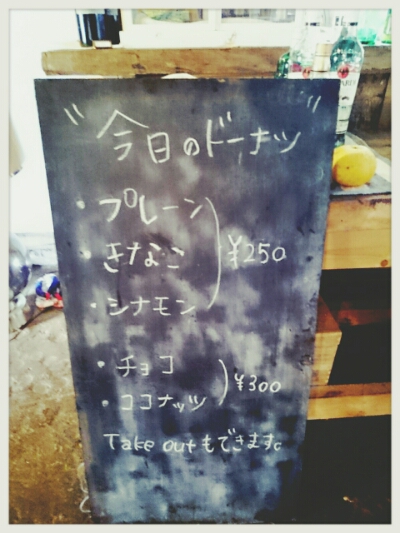 "今日のドーナツ"
・プレーン
・きなこ ¥250
・シナモン
・チョコ
・ココナッツ ¥300
Take outもできます。